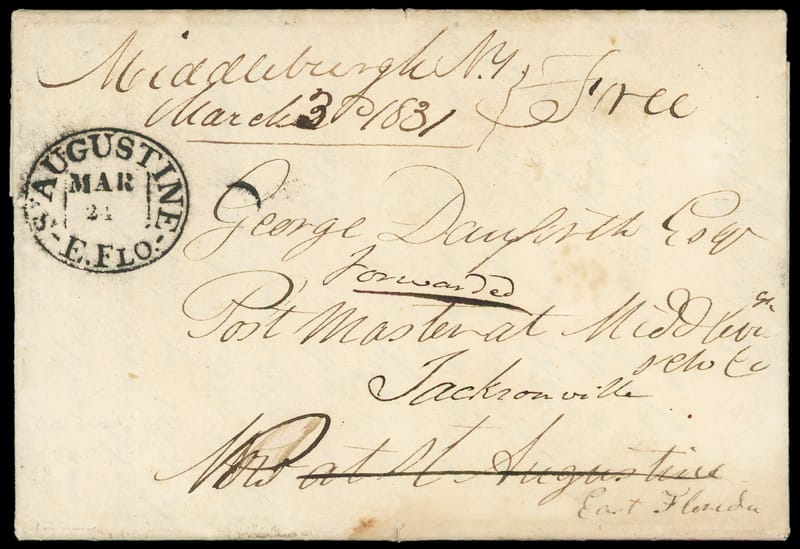 Middleburgh N.Y } Free
March 3d 1831
ST AUGUSTINE
MAR
24
E. FLO.
George Danforth Esqr
Forwarded
Post Master at Middleburgh
Jacksonville
at St Augustine
East Florida